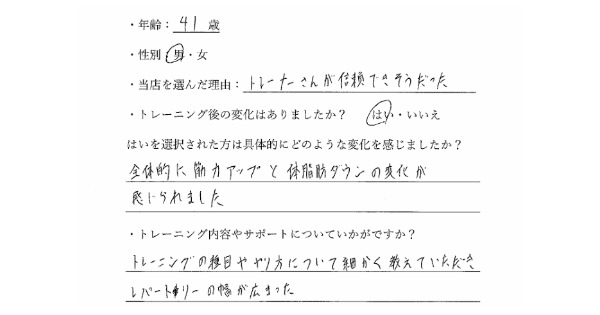 ・年齢：41歳
・性別：男・女
・当店を選んだ理由：トレーナーさんが信頼できそうだった
・トレーニング後の変化はありましたか？　はい・いいえ
はいを選択された方は具体的にどのような変化を感じましたか？
全体的に筋力アップと体脂肪ダウンの変化が
感じられました
・トレーニング内容やサポートについていかがですか？
トレーニングの種目ややり方について細かく教えていただき
レパートリーの幅が広まった